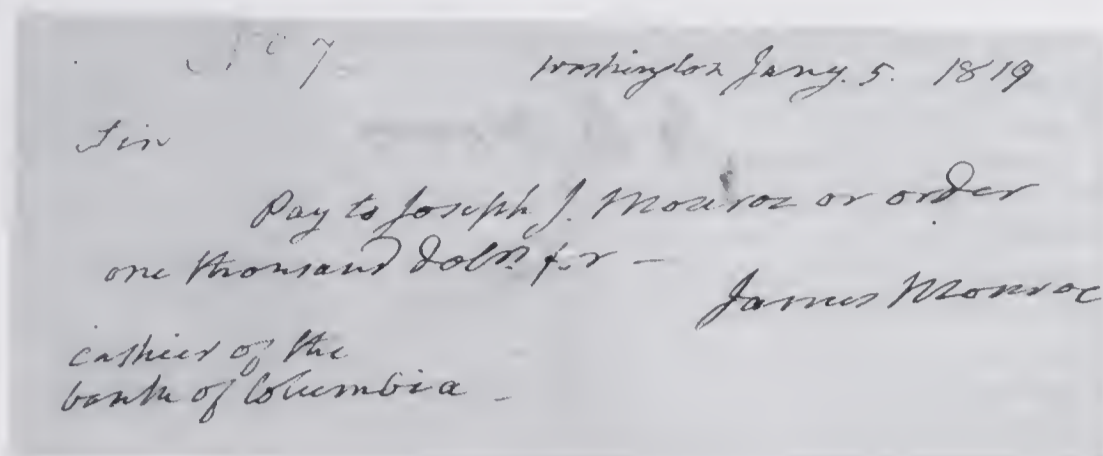 No 7. Washington Jany. 5. 1819
Sir
Pay to Joseph J. Monroe or order
one thousand dolrs. for —
James Monroe
cashier of the
bank of Columbia –